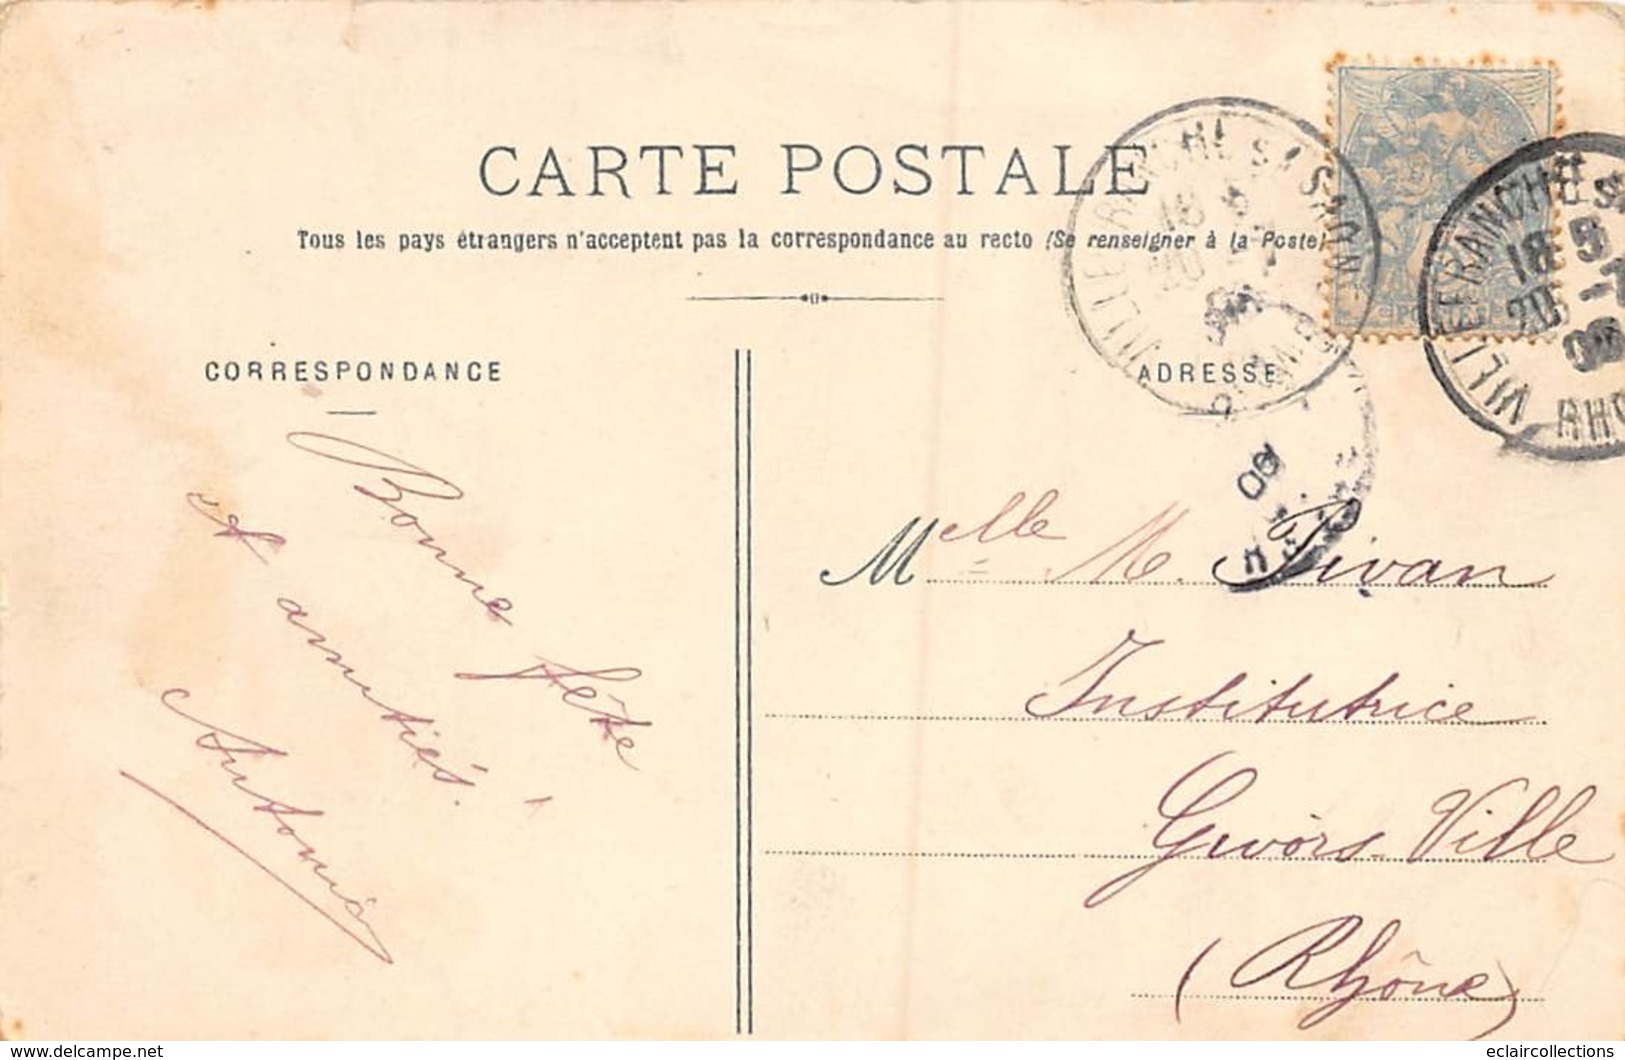 CARTE POSTALE
Tous les pays étrangers n'acceptent pas la correspondance au recto (Se renseigner à la Poste)
CORRESPONDANCE
ADRESSE
Bonne fête
& amitiés.
Antonia
Melle M. Pivan
Institutrice
Givors Ville
(Rhône)
VILLEFRANCHE S/ SAONE
18
VILLEFRANCHE S
18
RHO
POSTES
eclaircollections
www.delcampe.net